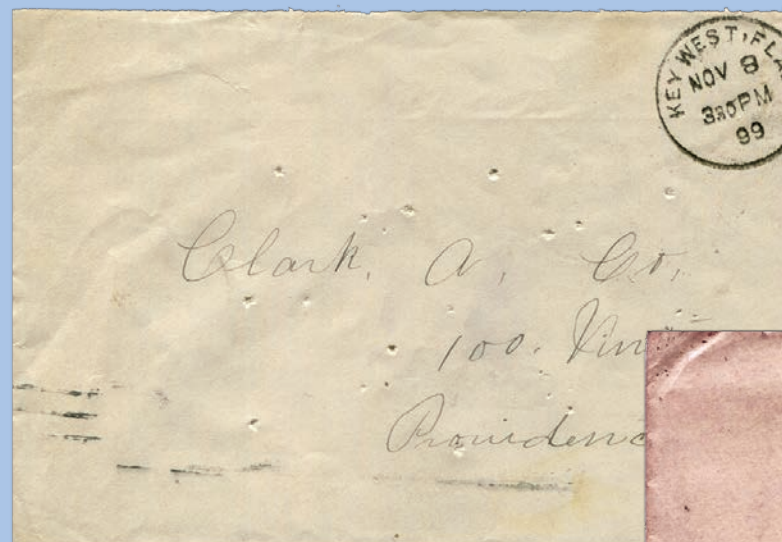 KEY WEST, FLA
NOV 8
330PM
99
Clark, A, Co,
100. Vin
Providenc